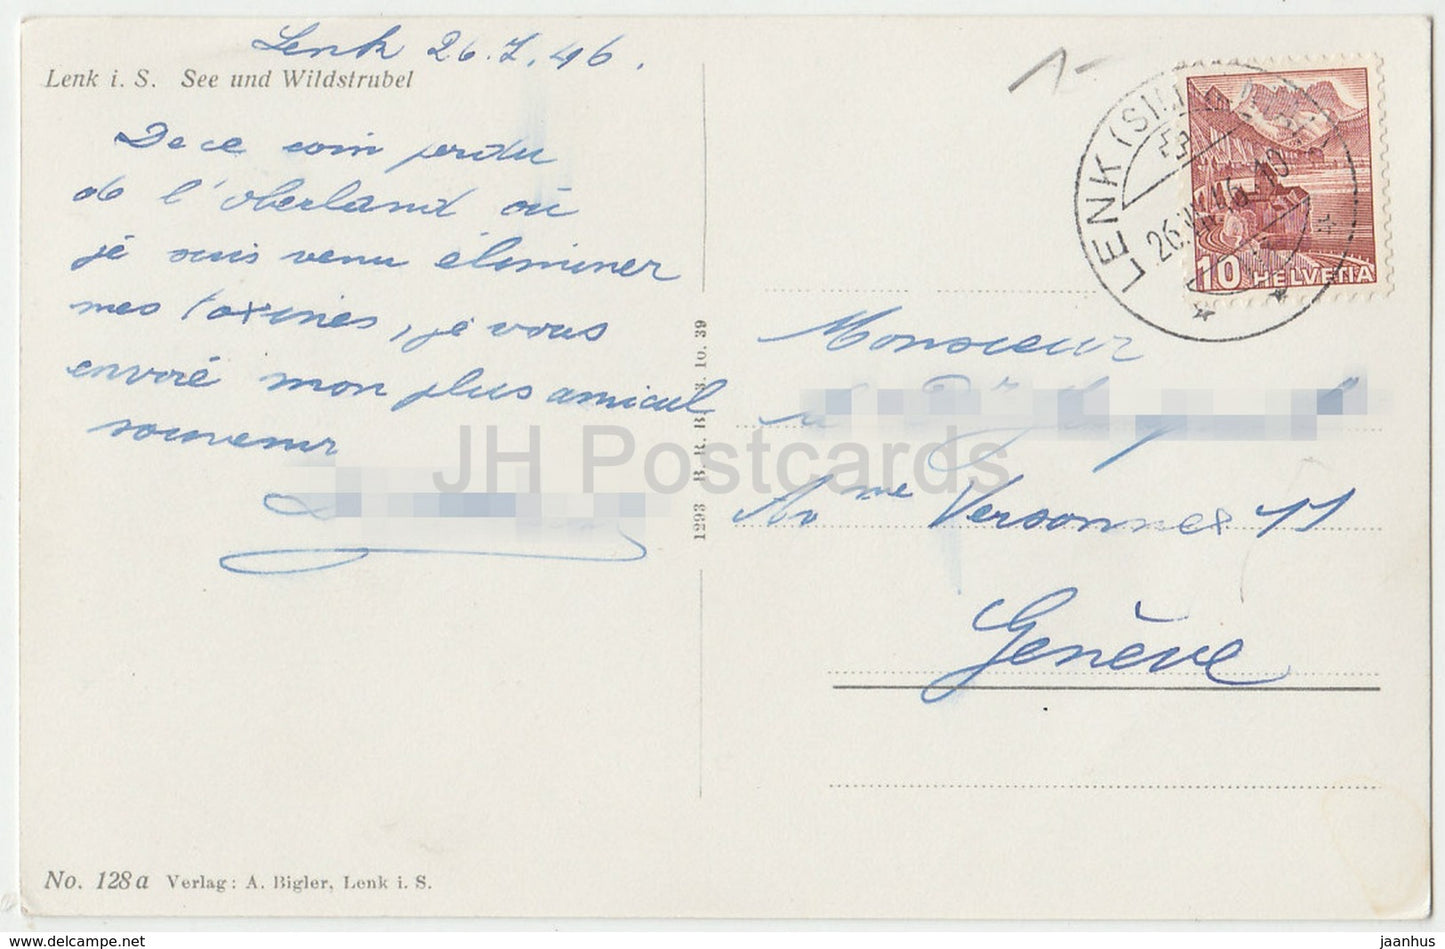 Lenk 26.7.46.
Lenk i. S. See und Wildstrubel
De ce coin perdu
de l'oberland où
je suis venu éliminer
mes toxines, je vous
envoie mon plus amical
souvenir
No. 128a Verlag: A. Bigler, Lenk i. S.
1293 B. R. B. 3. 10. 39
JH Postcards
LENK (SI
26. 46. 10
10 HELVETIA
Monsieur
Av me Versonnex 11
Genève
www.delcampe.net
jaanhus